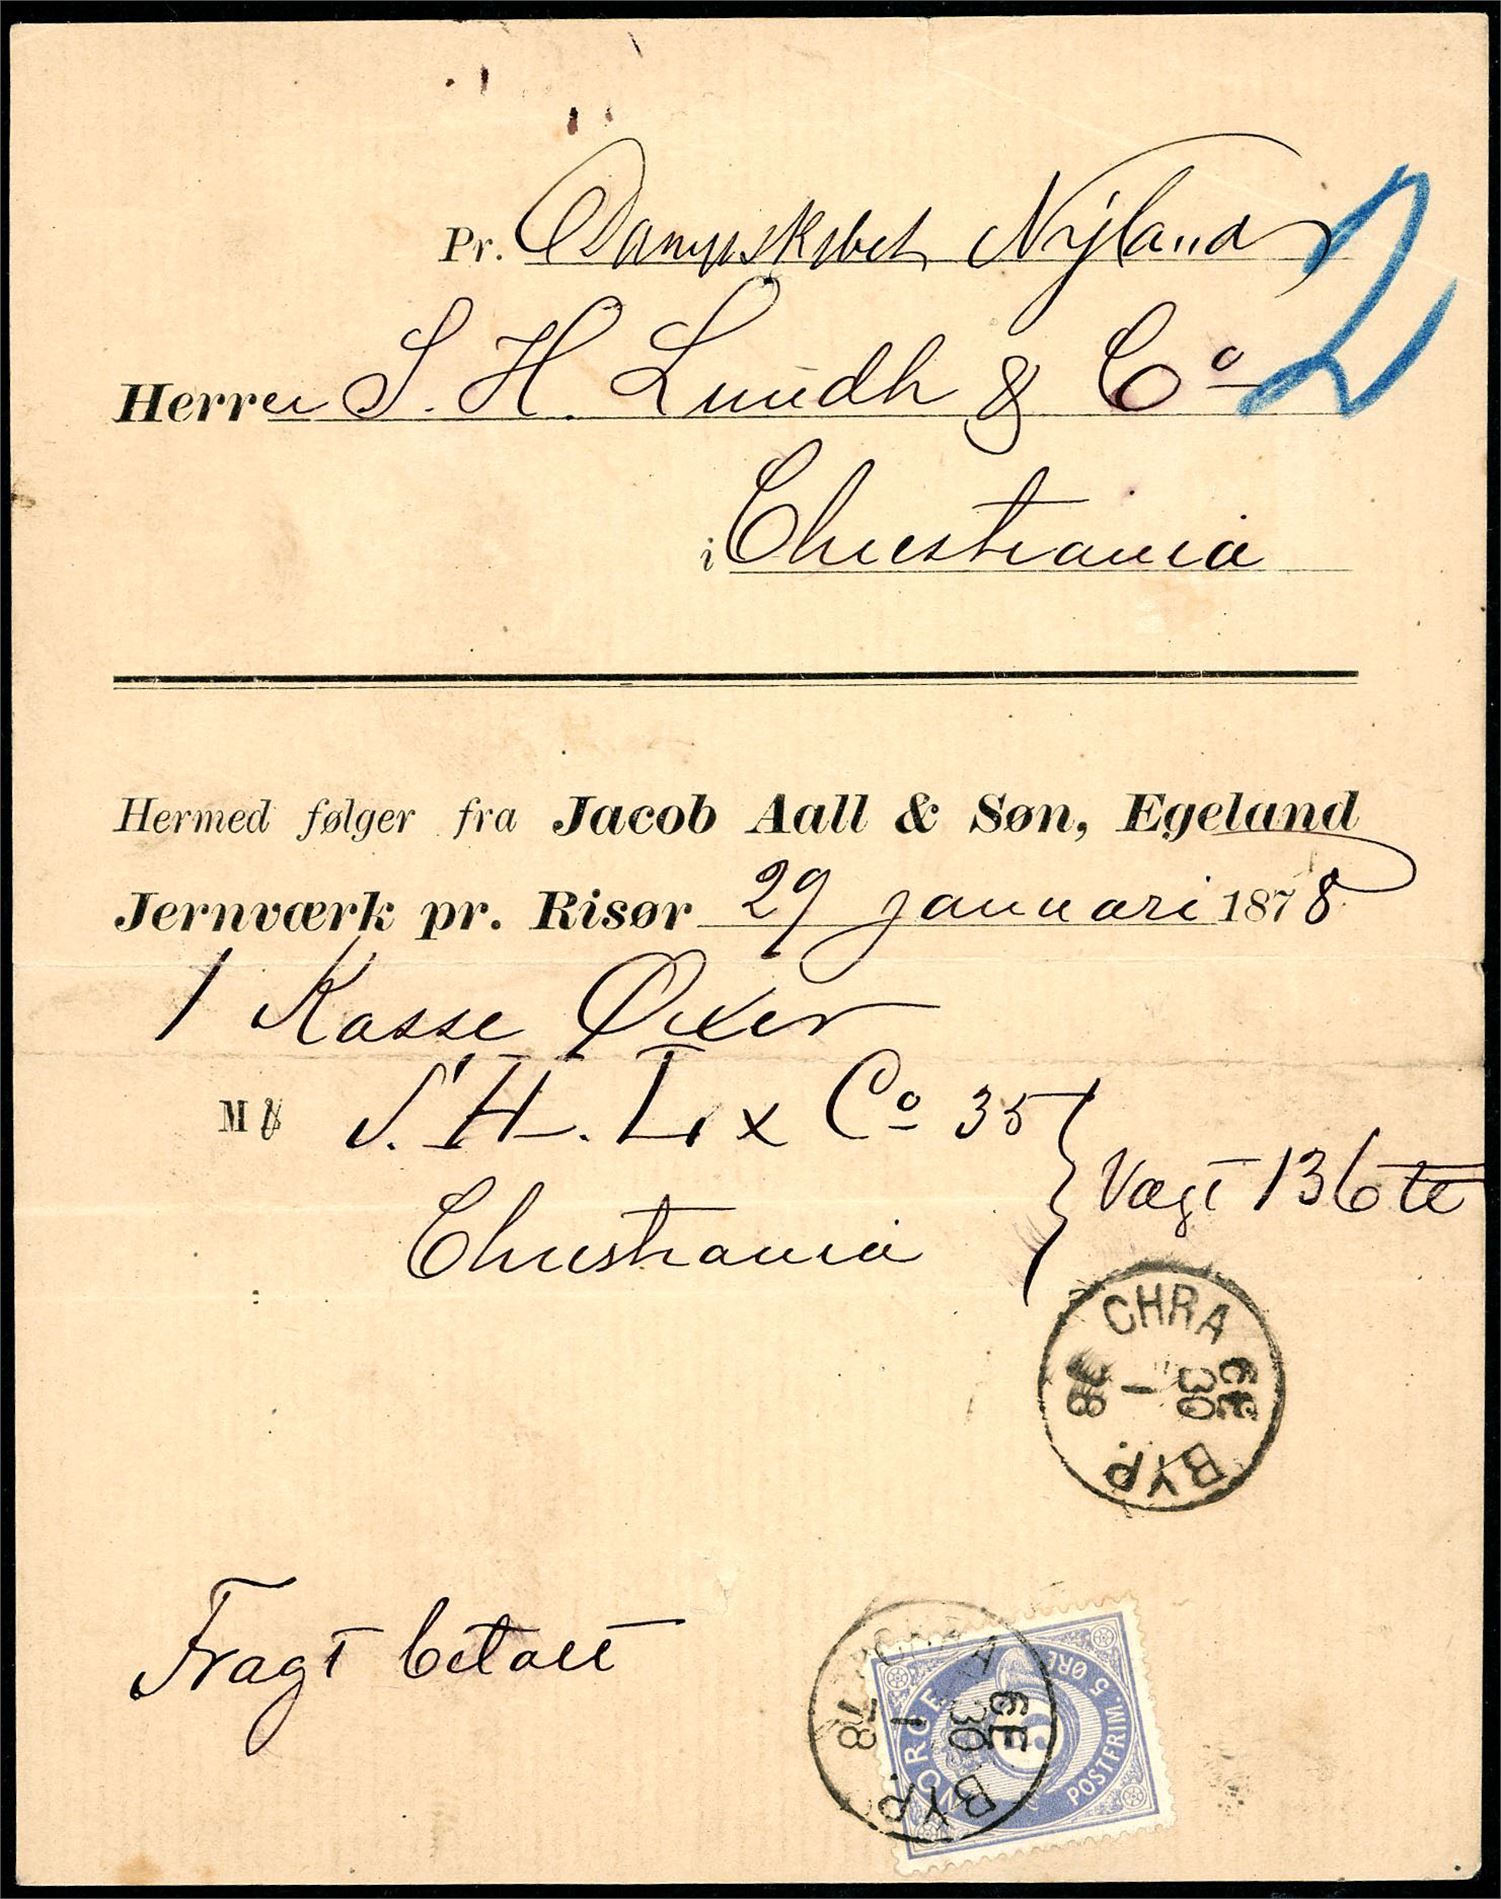 Pr. Dampskibet Nyland
2
Herrer S. H. Lundh & Co
i Christiania
Hermed følger fra Jacob Aall & Søn, Egeland
Jernværk pr. Risør 29 januari 1878
1 Kasse Øxer
M
S. H. L x Co 35
Vægt 136 ℔
Christiania
CHRA
30
1
78
BYP.
Fragt betalt
NORGE
POSTFRIM. 5 ØRE
5
CHRA
30
1
78
BYP.